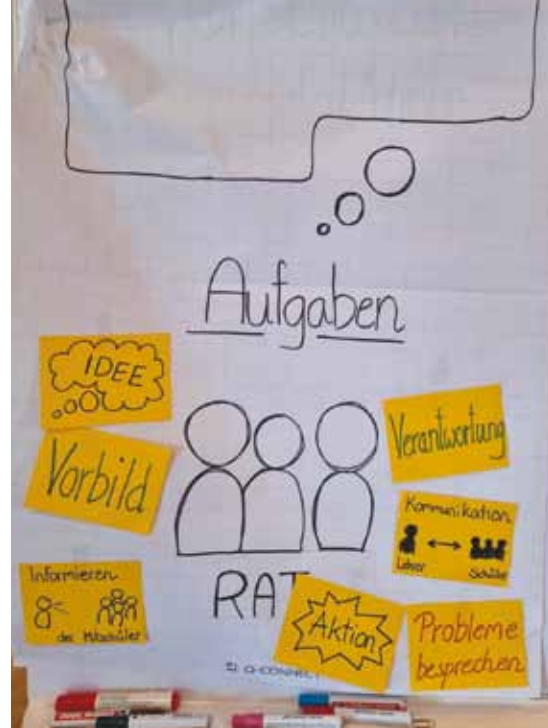 Aufgaben
IDEE
Vorbild
Verantwortung
Kommunikation
Lehrer
Schüler
Informieren
der Mitschüler
RAT
Aktion
Probleme
besprechen
Q-CONNECT